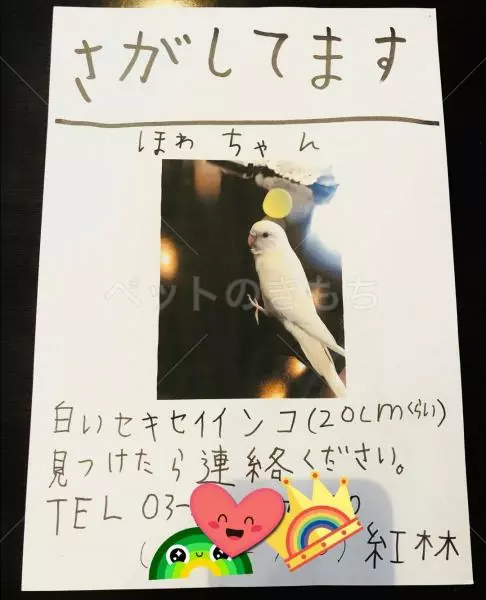 さがしてます
ほわちゃん
ペットのきもち
白いセキセイインコ(20cmくらい)
見つけたら連絡ください。
TEL 03-
紅林